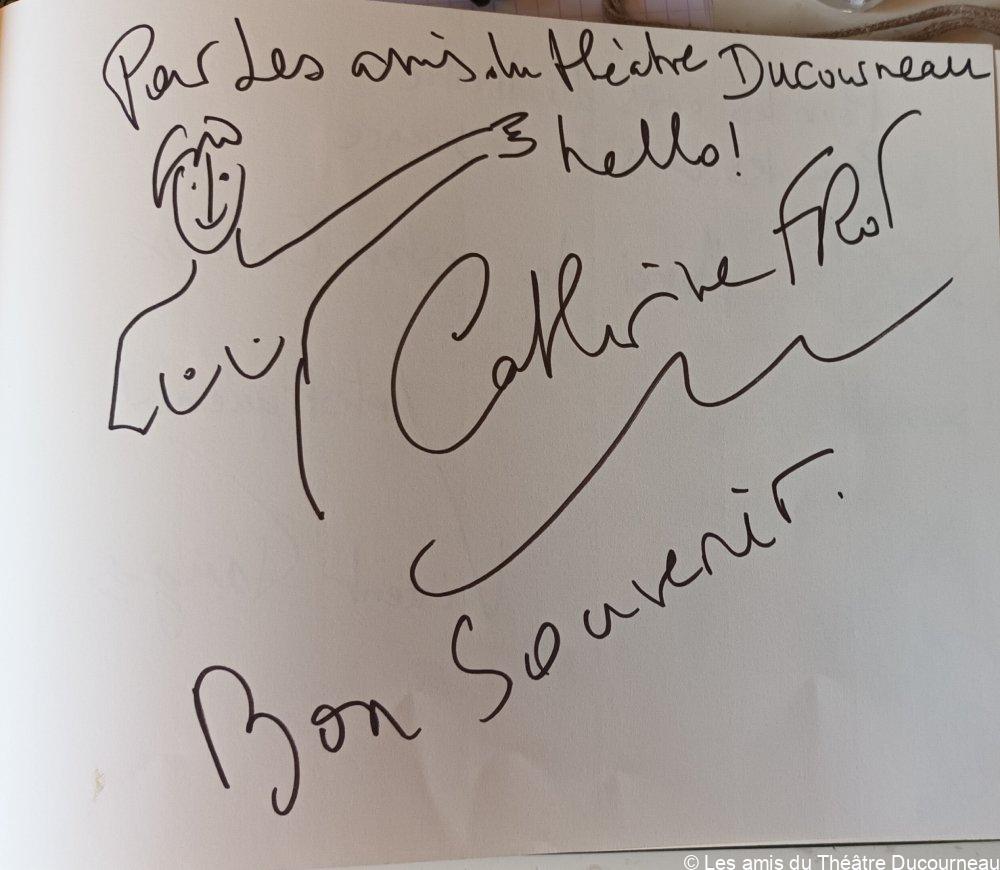 Pour Les amis du théâtre Ducourneau
hello!
Catherine FRot
Bon Souvenir.
© Les amis du Théâtre Ducourneau